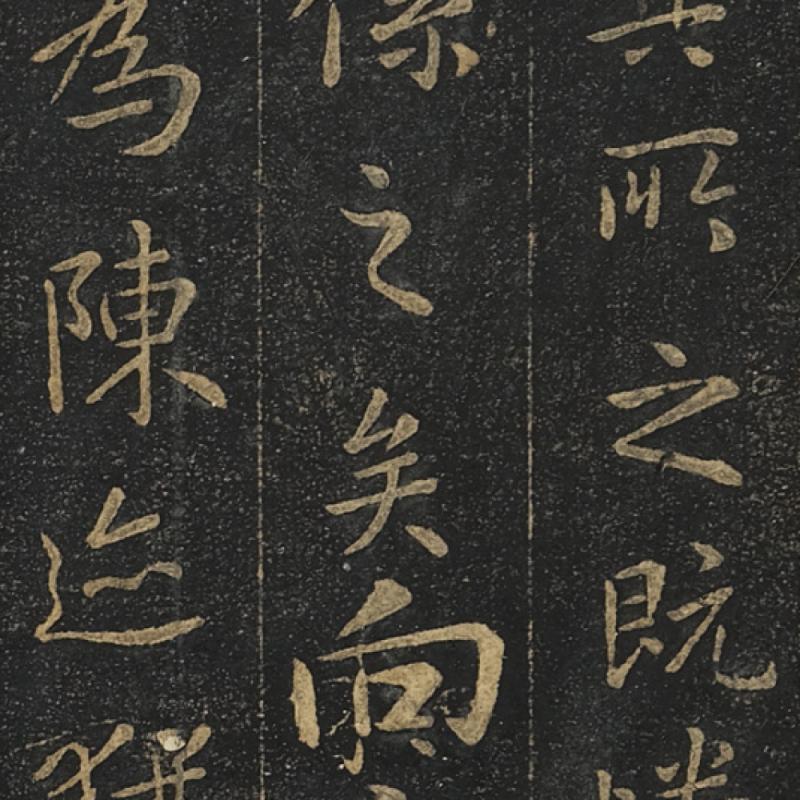 其所之既
係之矣向
為陳迹猶